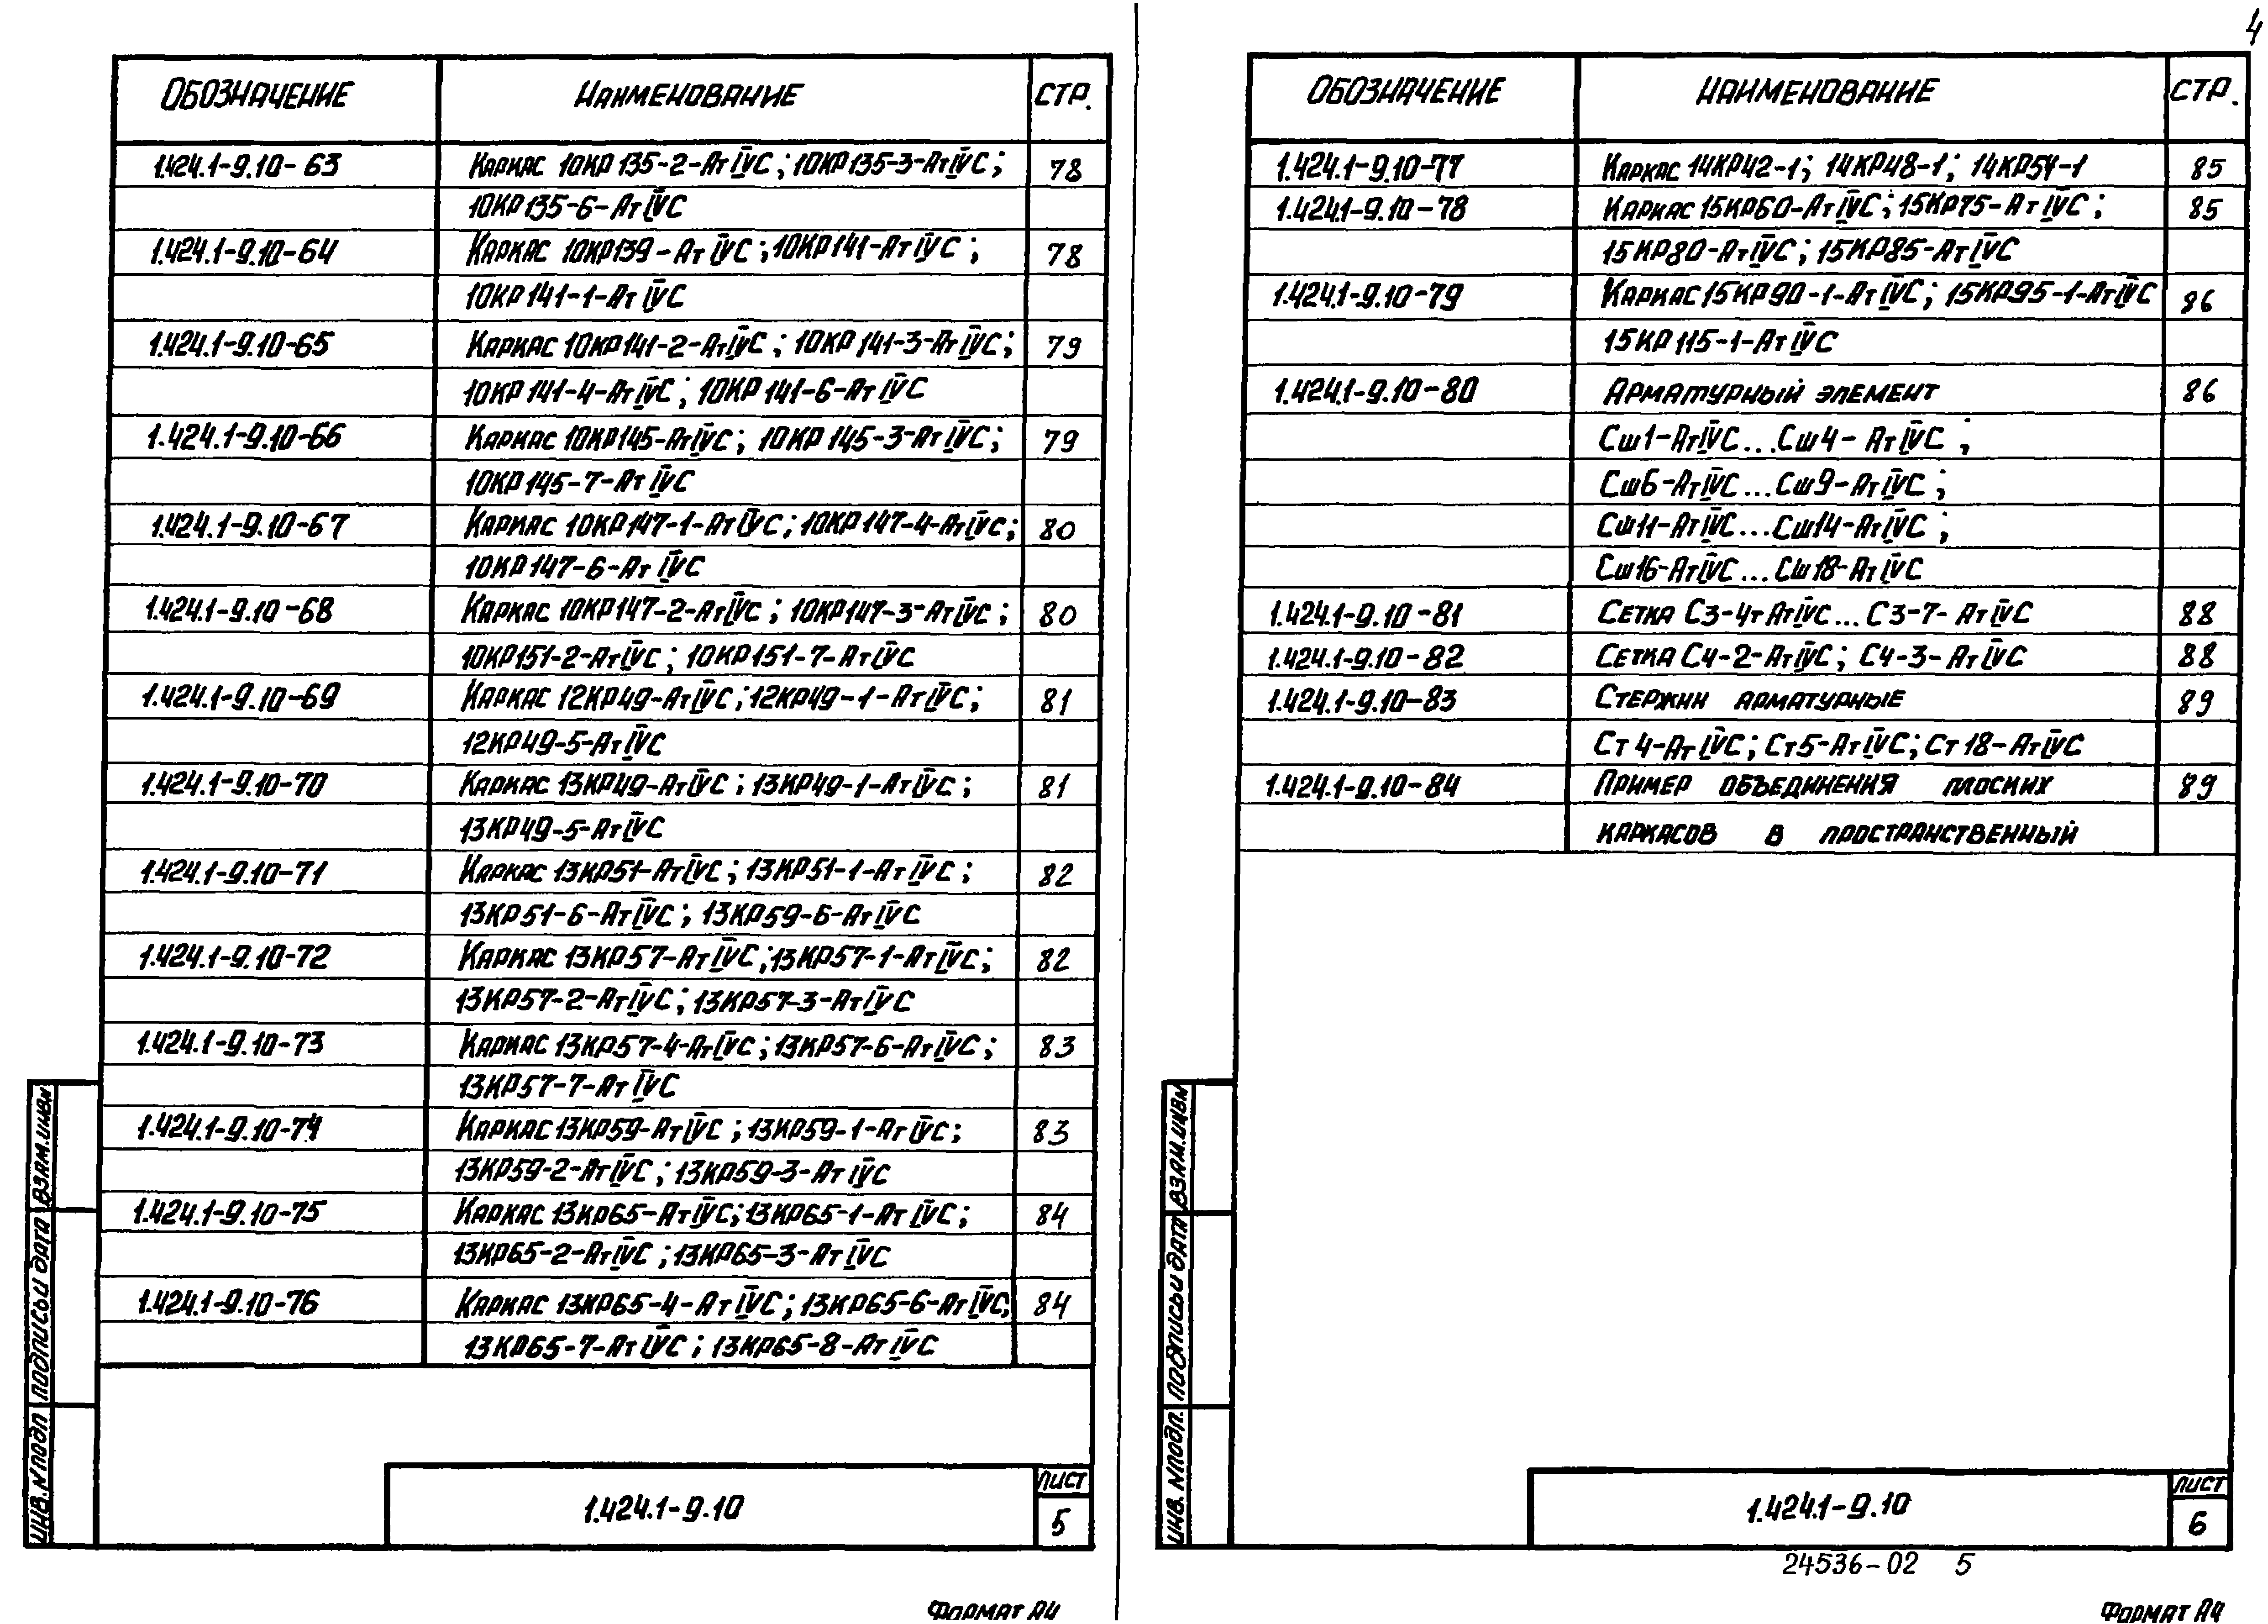 4
ОБОЗНАЧЕНИЕ НАИМЕНОВАНИЕ СТР.
1.424.1-9.10-63 КАРКАС 10КР135-2-АтIVС; 10КР135-3-АтIVС; 78
10КР135-6-АтIVС
1.424.1-9.10-64 КАРКАС 10КР139-АтIVС; 10КР141-АтIVС; 78
10КР141-1-АтIVС
1.424.1-9.10-65 КАРКАС 10КР141-2-АтIVС; 10КР141-3-АтIVС; 79
10КР141-4-АтIVС; 10КР141-6-АтIVС
1.424.1-9.10-66 КАРКАС 10КР145-АтIVС; 10КР145-3-АтIVС; 79
10КР145-7-АтIVС
1.424.1-9.10-67 КАРКАС 10КР147-1-АтIVС; 10КР147-4-АтIVС; 80
10КР147-6-АтIVС
1.424.1-9.10-68 КАРКАС 10КР147-2-АтIVС; 10КР147-3-АтIVС; 80
10КР151-2-АтIVС; 10КР151-7-АтIVС
1.424.1-9.10-69 КАРКАС 12КР49-АтIVС; 12КР49-1-АтIVС; 81
12КР49-5-АтIVС
1.424.1-9.10-70 КАРКАС 13КР49-АтIVС; 13КР49-1-АтIVС; 81
13КР49-5-АтIVС
1.424.1-9.10-71 КАРКАС 13КР51-АтIVС; 13КР51-1-АтIVС; 82
13КР51-6-АтIVС; 13КР59-6-АтIVС
1.424.1-9.10-72 КАРКАС 13КР57-АтIVС; 13КР57-1-АтIVС; 82
13КР57-2-АтIVС; 13КР57-3-АтIVС
1.424.1-9.10-73 КАРКАС 13КР57-4-АтIVС; 13КР57-6-АтIVС; 83
13КР57-7-АтIVС
1.424.1-9.10-74 КАРКАС 13КР59-АтIVС; 13КР59-1-АтIVС; 83
13КР59-2-АтIVС; 13КР59-3-АтIVС
1.424.1-9.10-75 КАРКАС 13КР65-АтIVС; 13КР65-1-АтIVС; 84
13КР65-2-АтIVС; 13КР65-3-АтIVС
1.424.1-9.10-76 КАРКАС 13КР65-4-АтIVС; 13КР65-6-АтIVС; 84
13КР65-7-АтIVС; 13КР65-8-АтIVС
ИНВ. № ПОДЛ ПОДПИСЬ И ДАТА ВЗАМ. ИНВ. №
1.424.1-9.10
ЛИСТ
5
ФОРМАТ А4
ОБОЗНАЧЕНИЕ НАИМЕНОВАНИЕ СТР.
1.424.1-9.10-77 КАРКАС 14КР42-1; 14КР48-1; 14КР54-1 85
1.424.1-9.10-78 КАРКАС 15КР60-АтIVС; 15КР75-АтIVС; 85
15КР80-АтIVС; 15КР85-АтIVС
1.424.1-9.10-79 КАРКАС 15КР90-1-АтIVС; 15КР95-1-АтIVС 86
15КР115-1-АтIVС
1.424.1-9.10-80 АРМАТУРНЫЙ ЭЛЕМЕНТ 86
Сш1-АтIVС...Сш4-АтIVС;
Сш6-АтIVС...Сш9-АтIVС;
Сш11-АтIVС...Сш14-АтIVС;
Сш16-АтIVС...Сш18-АтIVС
1.424.1-9.10-81 СЕТКА С3-4-АтIVС...С3-7-АтIVС 88
1.424.1-9.10-82 СЕТКА С4-2-АтIVС; С4-3-АтIVС 88
1.424.1-9.10-83 СТЕРЖНИ АРМАТУРНЫЕ 89
Ст4-АтIVС; Ст5-АтIVС; Ст18-АтIVС
1.424.1-9.10-84 ПРИМЕР ОБЪЕДИНЕНИЯ ПЛОСКИХ 89
КАРКАСОВ В ПРОСТРАНСТВЕННЫЙ
ИНВ. № ПОДЛ. ПОДПИСЬ И ДАТА ВЗАМ. ИНВ. №
1.424.1-9.10
ЛИСТ
6
24536-02 5
ФОРМАТ А4